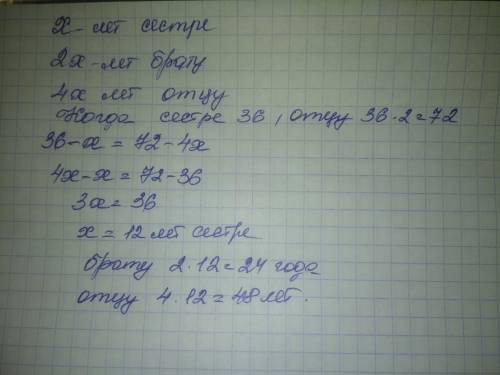 x - лет сестре
2x - лет брату
4x лет отцу
Когда сестре 36, отцу 36·2=72
36-x = 72-4x
4x-x = 72-36
3x = 36
x = 12 лет сестре
брату 2·12=24 года
отцу 4·12=48 лет.